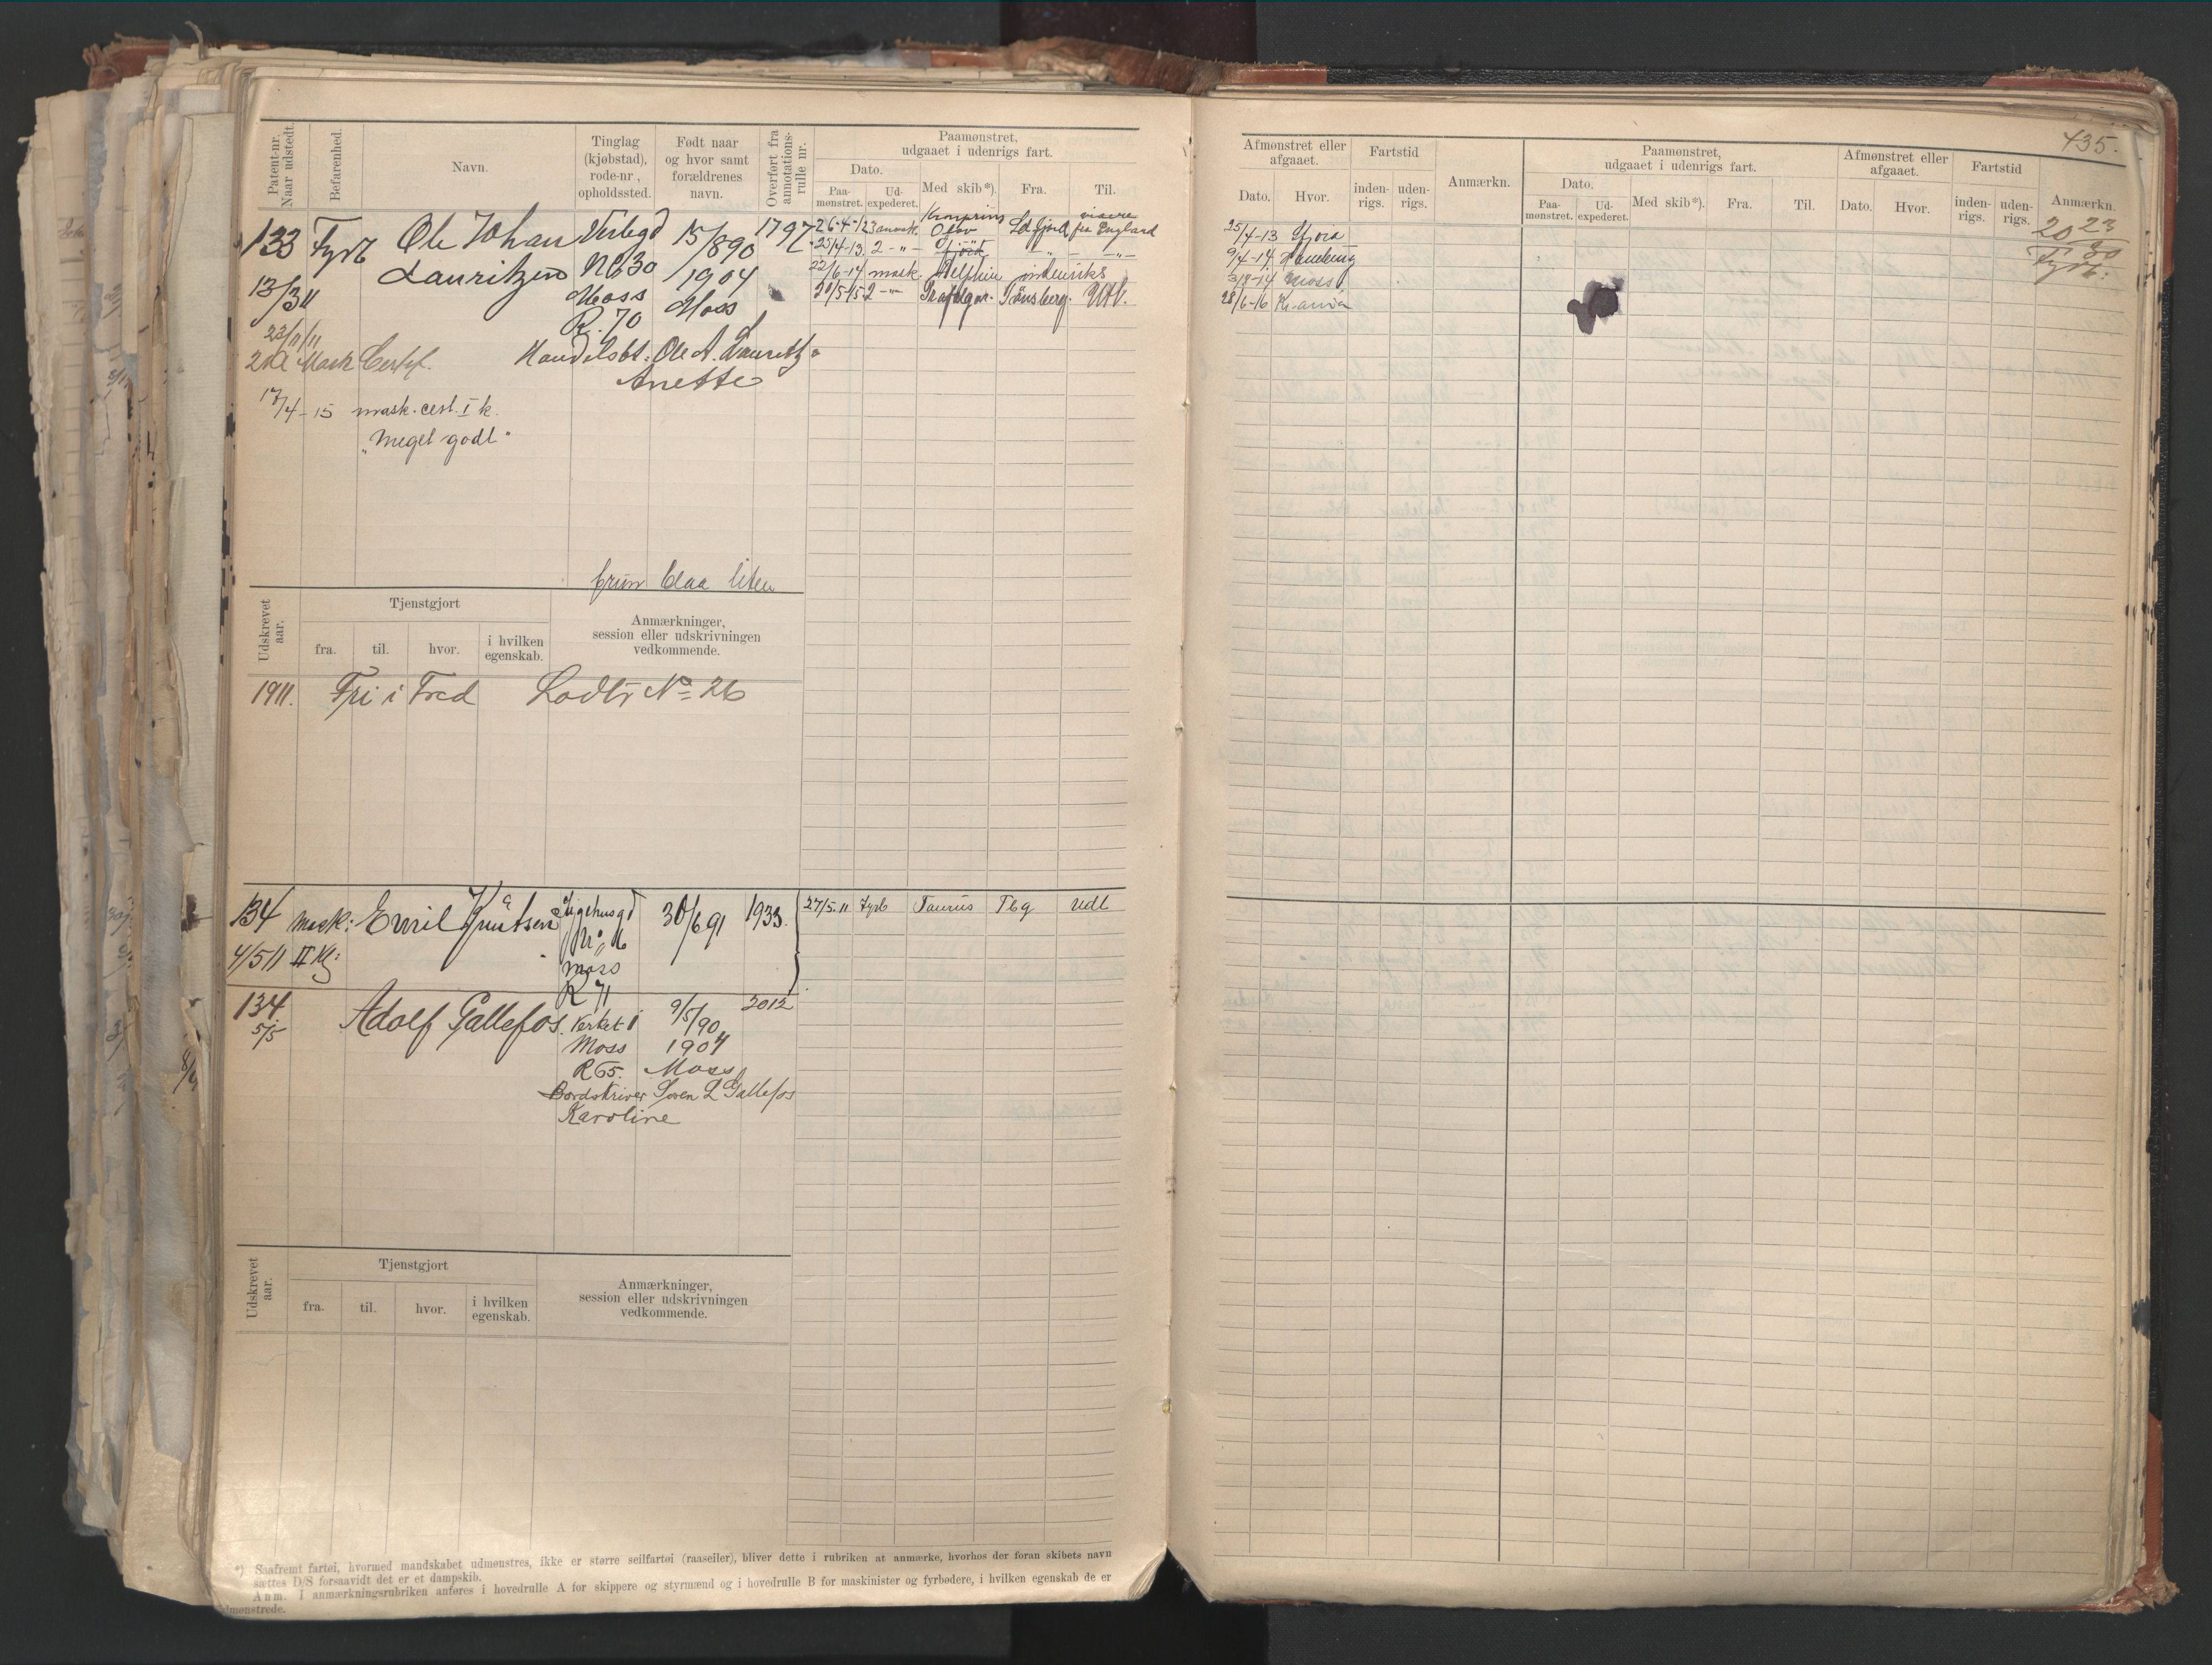 435.
Patent-nr. Naar udstedt.
Befarenhed.
Navn.
Tinglag (kjøbstad), rode-nr, opholdssted.
Født naar og hvor samt forældrenes navn.
Overført fra annotations-rulle nr.
Paamønstret, udgaaet i udenrigs fart.
Dato.
Paa-mønstret.
Ud-expederet.
Med skib*).
Fra.
Til.
133 Fyrb Ole Johan
Lauritzen
No 30
Moss
R. 70
15/8 90
1904
Moss
1797
13/3 11
23/11 11
2den Mask Certif.
Handelsbt. Ole A. Lauritz
Anette
17/4-15 mask. cert. I k.
"Meget godt"
Kronprins
Olav
fra England
25/4-13 2
22/6-14 mask. Delphin indenriks
2 Tönsberg. Utl.
brun blaa liten
Udskrevet aar.
Tjenstgjort
fra.
til.
hvor.
i hvilken egenskab.
Anmærkninger, session eller udskrivningen vedkommende.
1911. Fri i Fred Lodtr No 26
134 Mask: Emil Knutsen 30/6 91 1933. 27/5.11 Fyrb Taurus Tbg Udl
4/5 11 II Kl:
Moss
R 71
134 Adolf Gallefos. Verket 9/5/90 2012
5/5
Moss 1904
R 65. Moss
Bordskriver Soren L Gallefos
Karoline
Udskrevet aar.
Tjenstgjort
fra.
til.
hvor.
i hvilken egenskab.
Anmærkninger, session eller udskrivningen vedkommende.
*) Saafremt fartøi, hvormed mandskabet udmønstres, ikke er større seilfartøi (raaseiler), bliver dette i rubriken at anmærke, hvorhos der foran skibets navn
sættes D/S forsaavidt det er et dampskib.
Anm. I anmærkningsrubriken anføres i hovedrulle A for skippere og styrmænd og i hovedrulle B for maskinister og fyrbødere, i hvilken egenskab de er
Afmønstret eller afgaaet.
Dato.
Hvor.
Fartstid
inden-rigs.
uden-rigs.
Anmærkn.
Paamønstret, udgaaet i udenrigs fart.
Dato.
Paa-mønstret.
Ud-expederet.
Med skib*).
Fra.
Til.
Afmønstret eller afgaaet.
Dato.
Hvor.
Fartstid
inden-rigs.
uden-rigs.
Anmærkn.
20 23/30
Fyrb.
25/4-13
9/4-14 Hamburg
Moss
28/6-16 Kr.ania